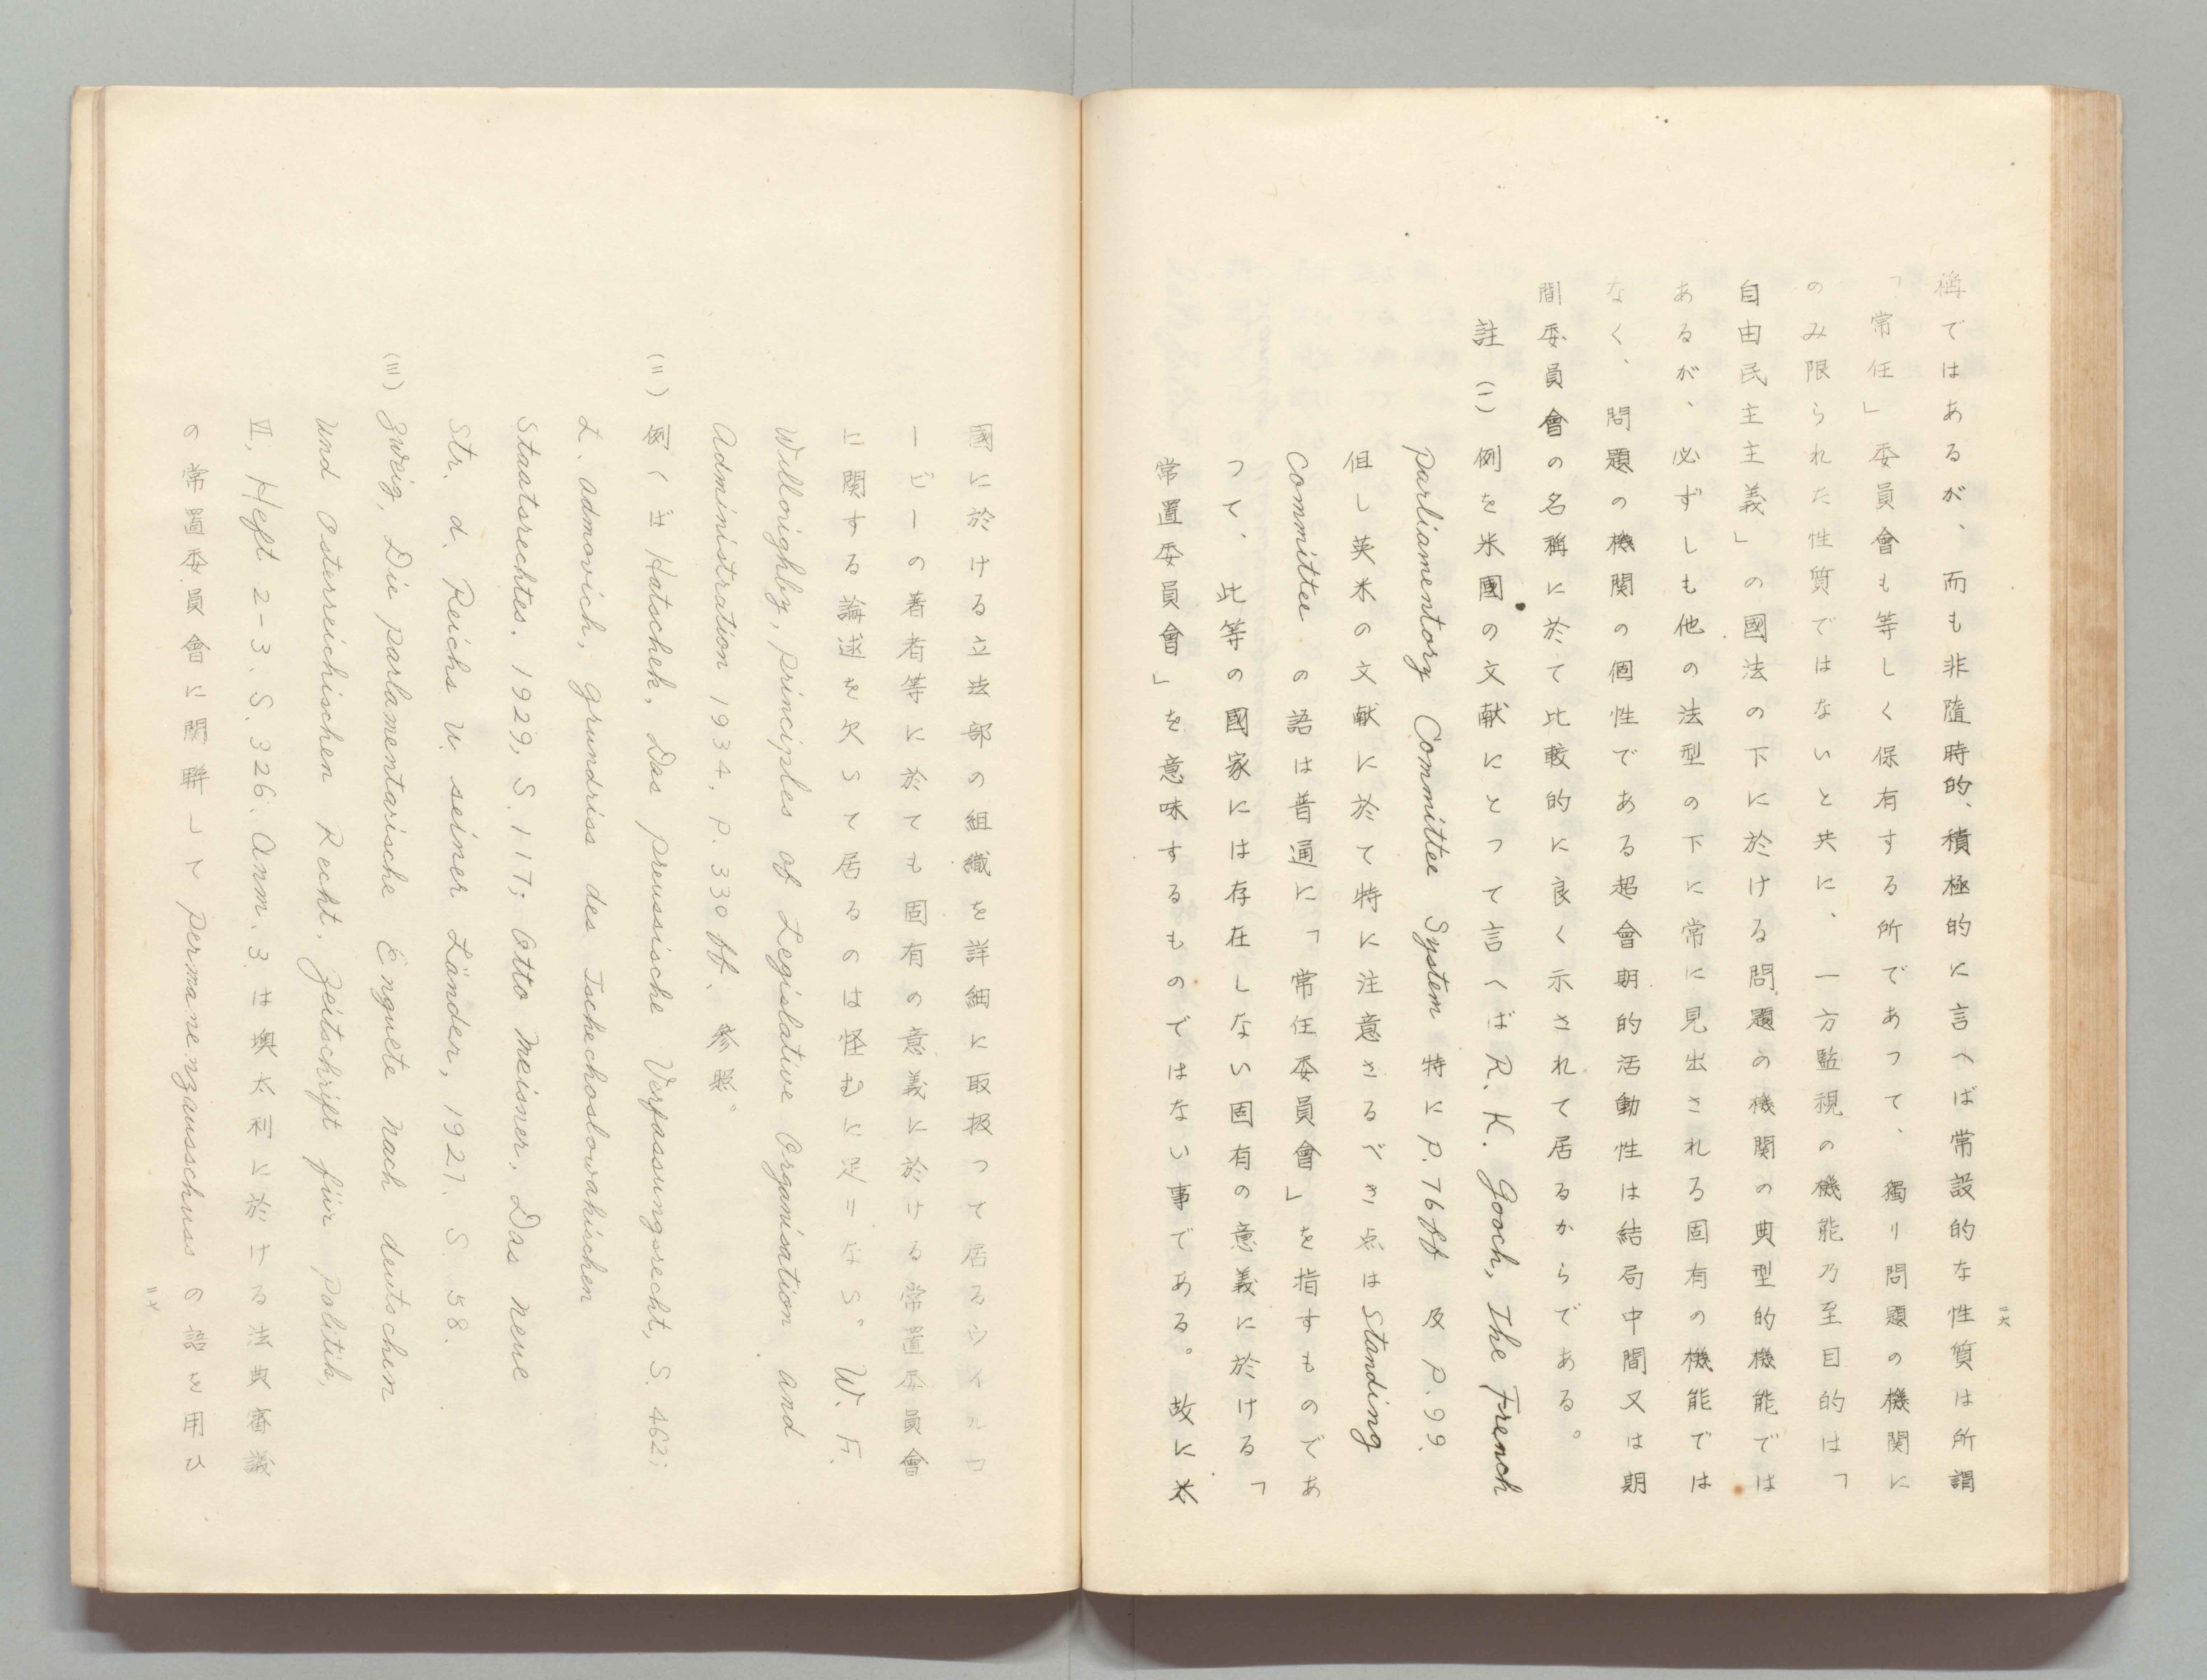 稱ではあるが、而も非隨時的、積極的に言へば常設的な性質は所謂
「常任」委員會も等しく保有する所であつて、獨リ問題の機関に
のみ限られた性質ではないと共に、一方監視の機能乃至目的は「
自由民主主義」の國法の下に於ける問題の機関の典型的機能では
あるが、必ずしも他の法型の下に常に見出される固有の機能では
なく、問題の機関の個性である超會期的活動性は結局中間又は期
間委員會の名稱に於て比較的に良く示されて居るからである。
註 (一) 例を米國の文献にとつて言へば R. K. Gooch, The French
Parliamentory Committee System 特に P.76ff 及 P.99.
但し英米の文献に於て特に注意さるべき点は Standing
Committee の語は普通に「常任委員會」を指すものであ
つて、此等の國家には存在しない固有の意義に於ける「
常置委員會」を意味するものではない事である。故に米
二六
國に於ける立法部の組織を詳細に取扱つて居るウイルロ
ービーの著者等に於ても固有の意義に於ける常置委員會
に関する論述を欠いて居るのは怪むに足りない。W. F.
Willoughby, Principles of Legislative Organisation and
Administration 1934, P. 330 ff. 参照。
(二) 例へば Hatschek, Das preussische Verfassungsrecht, S. 462;
L. Admovich, Grundriss des Tschechoslowakischen
Staatsrechtes. 1929, S. 117; Otto Meisner, Das neue
Str. d. Reichs u. seiner Länder, 1921. S. 58.
(三) Zweig, Die parlamentarische Enquete nach deutschen
und Österreichischen Recht, Zeitschrift für Politik,
VI, Heft 2-3, S. 326, Anm. 3 は墺太利に於ける法典審議
の常置委員會に関聯して Permanenzausschuss の語を用ひ
二七